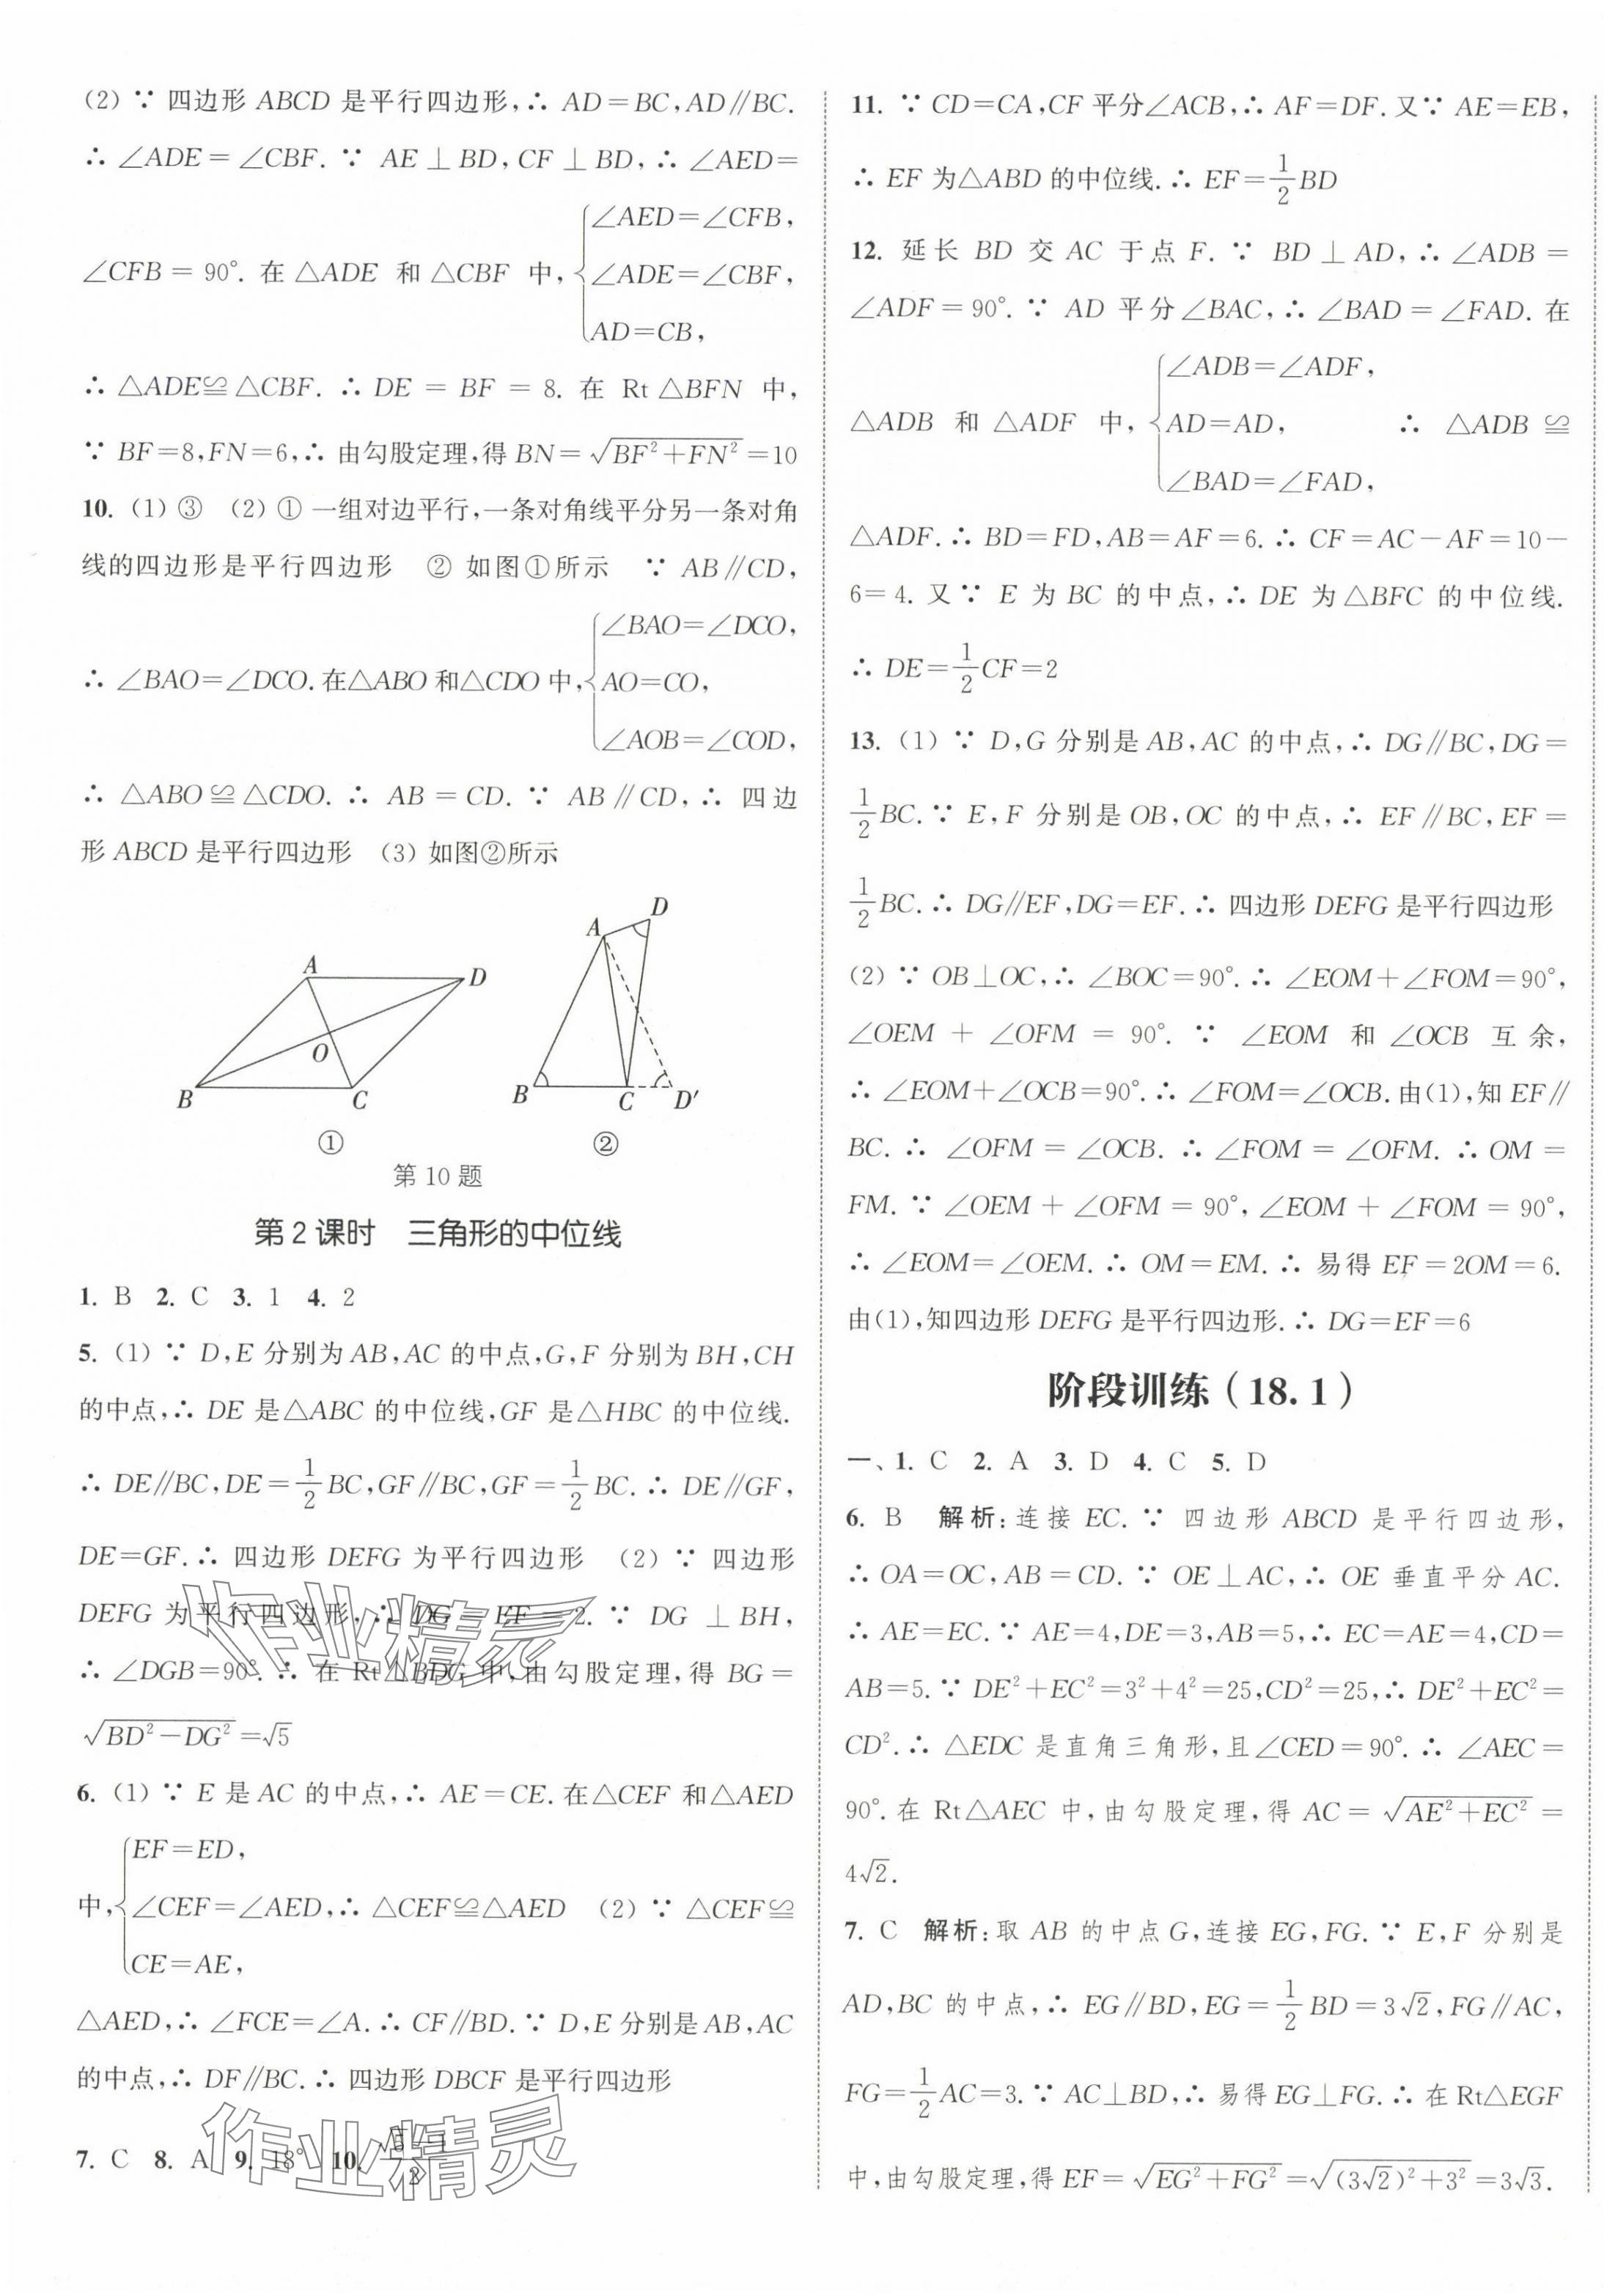 (2) ∵ 四边形 ABCD 是平行四边形,∴ AD=BC,AD∥BC.
∴ ∠ADE=∠CBF. ∵ AE⊥BD,CF⊥BD,∴ ∠AED=
∠AED=∠CFB,
∠CFB=90°. 在 △ADE 和 △CBF 中, ∠ADE=∠CBF,
AD=CB,
∴ △ADE≌△CBF. ∴ DE=BF=8. 在 Rt△BFN 中,
∵ BF=8,FN=6,∴ 由勾股定理,得 BN=√(BF²+FN²)=10
10. (1) ③ (2) ① 一组对边平行,一条对角线平分另一条对角
线的四边形是平行四边形 ② 如图①所示 ∵ AB∥CD,
∠BAO=∠DCO,
∴ ∠BAO=∠DCO. 在△ABO和△CDO中, AO=CO,
∠AOB=∠COD,
∴ △ABO≌△CDO. ∴ AB=CD. ∵ AB∥CD,∴ 四边
形 ABCD 是平行四边形 (3) 如图②所示
A
D
O
B
C
①
A
D
B
C
D′
②
第 10 题
第 2 课时 三角形的中位线
1. B 2. C 3. 1 4. 2
5. (1) ∵ D,E 分别为 AB,AC 的中点,G,F 分别为 BH,CH
的中点,∴ DE 是△ABC 的中位线,GF 是△HBC 的中位线.
∴ DE∥BC,DE=1/2 BC,GF∥BC,GF=1/2 BC. ∴ DE∥GF,
DE=GF. ∴ 四边形 DEFG 为平行四边形 (2) ∵ 四边形
DEFG 为平行四边形,∴ DG=EF=2. ∵ DG⊥BH,
∴ ∠DGB=90°. ∴ 在 Rt△BDG 中,由勾股定理,得 BG=
√(BD²−DG²)=√5
6. (1) ∵ E 是 AC 的中点,∴ AE=CE. 在△CEF 和△AED
EF=ED,
中, ∠CEF=∠AED,∴ △CEF≌△AED (2) ∵ △CEF≌
CE=AE,
△AED,∴ ∠FCE=∠A. ∴ CF∥BD. ∵ D,E 分别是 AB,AC
的中点,∴ DF∥BC. ∴ 四边形 DBCF 是平行四边形
7. C 8. A 9. 18° 10.
作业精灵
作业精灵
11. ∵ CD=CA,CF 平分∠ACB,∴ AF=DF. 又∵ AE=EB,
∴ EF 为△ABD 的中位线. ∴ EF=1/2 BD
12. 延长 BD 交 AC 于点 F. ∵ BD⊥AD,∴ ∠ADB=
∠ADF=90°. ∵ AD 平分∠BAC,∴ ∠BAD=∠FAD. 在
∠ADB=∠ADF,
△ADB 和 △ADF 中, AD=AD, ∴ △ADB≌
∠BAD=∠FAD,
△ADF. ∴ BD=FD,AB=AF=6. ∴ CF=AC−AF=10−
6=4. 又∵ E 为 BC 的中点,∴ DE 为△BFC 的中位线.
∴ DE=1/2 CF=2
13. (1) ∵ D,G 分别是 AB,AC 的中点,∴ DG∥BC,DG=
1/2 BC. ∵ E,F 分别是 OB,OC 的中点,∴ EF∥BC,EF=
1/2 BC. ∴ DG∥EF,DG=EF. ∴ 四边形 DEFG 是平行四边形
(2) ∵ OB⊥OC,∴ ∠BOC=90°. ∴ ∠EOM+∠FOM=90°,
∠OEM+∠OFM=90°. ∵ ∠EOM 和 ∠OCB 互余,
∴ ∠EOM+∠OCB=90°. ∴ ∠FOM=∠OCB. 由(1),知 EF∥
BC. ∴ ∠OFM=∠OCB. ∴ ∠FOM=∠OFM. ∴ OM=
FM. ∵ ∠OEM+∠OFM=90°,∠EOM+∠FOM=90°,
∴ ∠EOM=∠OEM. ∴ OM=EM. ∴ 易得 EF=2OM=6.
由(1),知四边形 DEFG 是平行四边形. ∴ DG=EF=6
阶段训练(18.1)
一、1. C 2. A 3. D 4. C 5. D
6. B 解析:连接 EC. ∵ 四边形 ABCD 是平行四边形,
∴ OA=OC,AB=CD. ∵ OE⊥AC,∴ OE 垂直平分 AC.
∴ AE=EC. ∵ AE=4,DE=3,AB=5,∴ EC=AE=4,CD=
AB=5. ∵ DE²+EC²=3²+4²=25,CD²=25,∴ DE²+EC²=
CD². ∴ △EDC 是直角三角形,且∠CED=90°. ∴ ∠AEC=
90°. 在 Rt△AEC 中,由勾股定理,得 AC=√(AE²+EC²)=
4√2.
7. C 解析:取 AB 的中点 G,连接 EG,FG. ∵ E,F 分别是
AD,BC 的中点,∴ EG∥BD,EG=1/2 BD=3√2,FG∥AC,
FG=1/2 AC=3. ∵ AC⊥BD,∴ 易得 EG⊥FG. ∴ 在 Rt△EGF
中,由勾股定理,得 EF=√(EG²+FG²)=√((3√2)²+3²)=3√3.